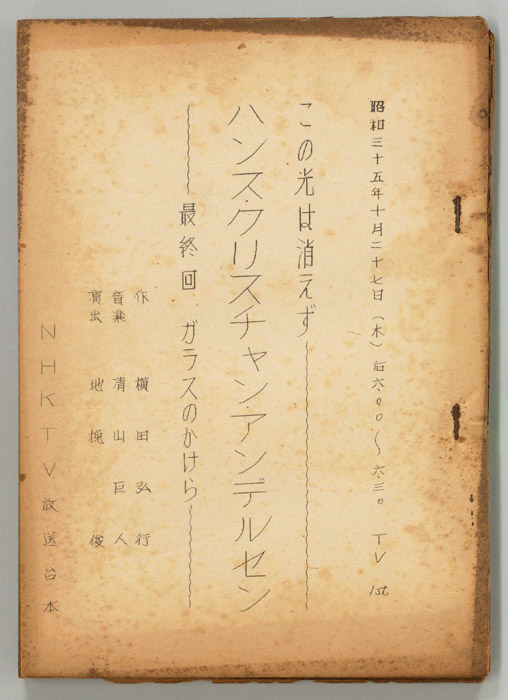 昭和三十五年十月二十七日（木）后六.〇〇〜六.三〇 TV 1st
この光は消えず
ハンス・クリスチャン・アンデルセン
最終回 ガラスのかけら
作 横田弘行
音楽 清山巨人
演出 地挽俊
NHKTV放送台本